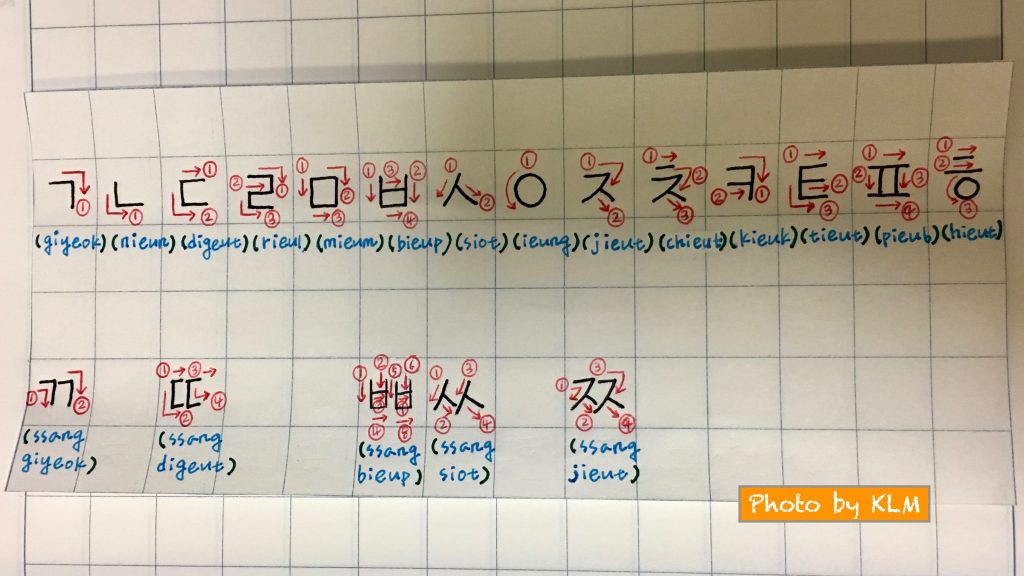 ㄱ ㄴ ㄷ ㄹ ㅁ ㅂ ㅅ ㅇ ㅈ ㅊ ㅋ ㅌ ㅍ ㅎ
(giyeok) (nieun) (digeut) (rieul) (mieum) (bieup) (siot) (ieung) (jieut) (chieut) (kieuk) (tieut) (pieub) (hieut)
ㄲ ㄸ ㅃ ㅆ ㅉ
(ssang giyeok) (ssang digeut) (ssang bieup) (ssang siot) (ssang jieut)
Photo by KLM